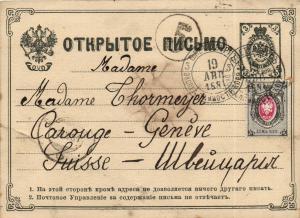 ОТКРЫТОЕ ПИСЬМО.
19
АПР
Madame
Madame Thormeyer
Carouge - Genève
Suisse - Швейцарія
1. На этой сторонѣ кромѣ адреса не дозволяется ничего другаго писать.
2. Почтовое Управленіе за содержаніе письма не отвѣчаетъ.